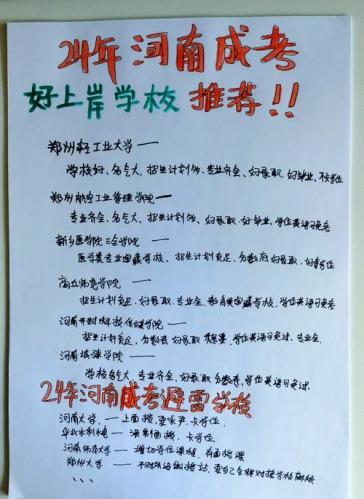 24年河南成考
好上岸学校 推荐!!
郑州轻工业大学——
学校好、名气大、招生计划多、专业齐全、好录取、好毕业、
郑州航空工业管理学院——
专业齐全、名气大、招生计划多、好录取、好毕业、学位英语可免考
新乡医学院三全学院——
医学类专业 学校、招生计划充足、分数低好录取、好
商丘师范学院——
招生计划充足、好录取、专业全、教育类 学校、学位英语可免考
河南开封科技传媒学院——
招生计划充足、分数低 好录取 学位英语可免过、专业全
河南城建学院——
学校名气大、专业齐全、好录取 分数低、学位英语可免考
24年河南成考避雷学校
河南大学、——上面授、要求严、卡学位
华北水利水电——深圳面授、卡学位
河南师范大学——增加学位课程、有面授课
郑州大学——
、、、